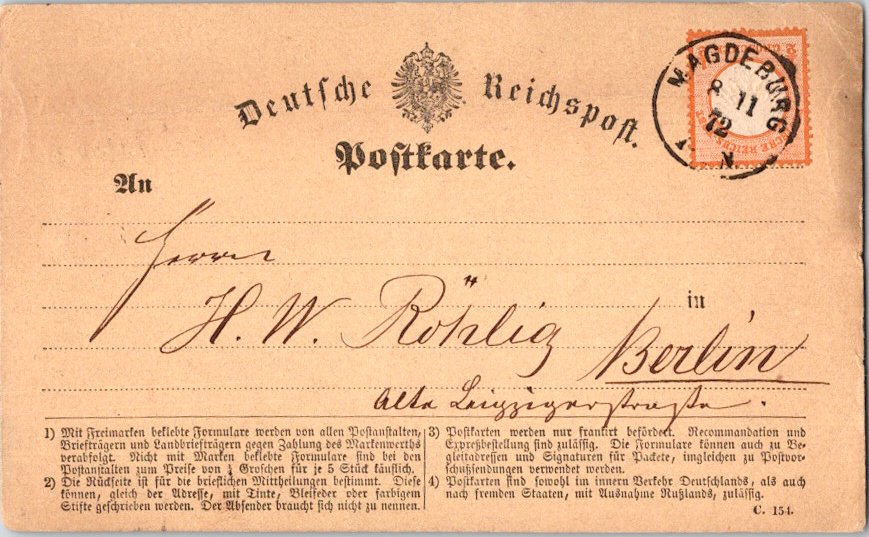 Deutsche Reichspost.
Postkarte.
MAGDEBURG
8 11
72
N.
An
Herrn
H. W. Röhlig
in
Berlin
Alte Leipzigerstraße.
1) Mit Freimarken beklebte Formulare werden von allen Postanstalten,
Briefträgern und Landbriefträgern gegen Zahlung des Markenwerths
verabfolgt. Nicht mit Marken beklebte Formulare sind bei den
Postanstalten zum Preise von ¼ Groschen für je 5 Stück käuflich.
2) Die Rückseite ist für die brieflichen Mittheilungen bestimmt. Diese
können, gleich der Adresse, mit Tinte, Bleifeder oder farbigem
Stifte geschrieben werden. Der Absender braucht sich nicht zu nennen.
3) Postkarten werden nur frankirt befördert. Recommandation und
Expreßbestellung sind zulässig. Die Formulare können auch zu Be-
gleitadressen und Signaturen für Packete, imgleichen zu Postvor-
schußsendungen verwendet werden.
4) Postkarten sind sowohl im innern Verkehr Deutschlands, als auch
nach fremden Staaten, mit Ausnahme Rußlands, zulässig.
C. 154.